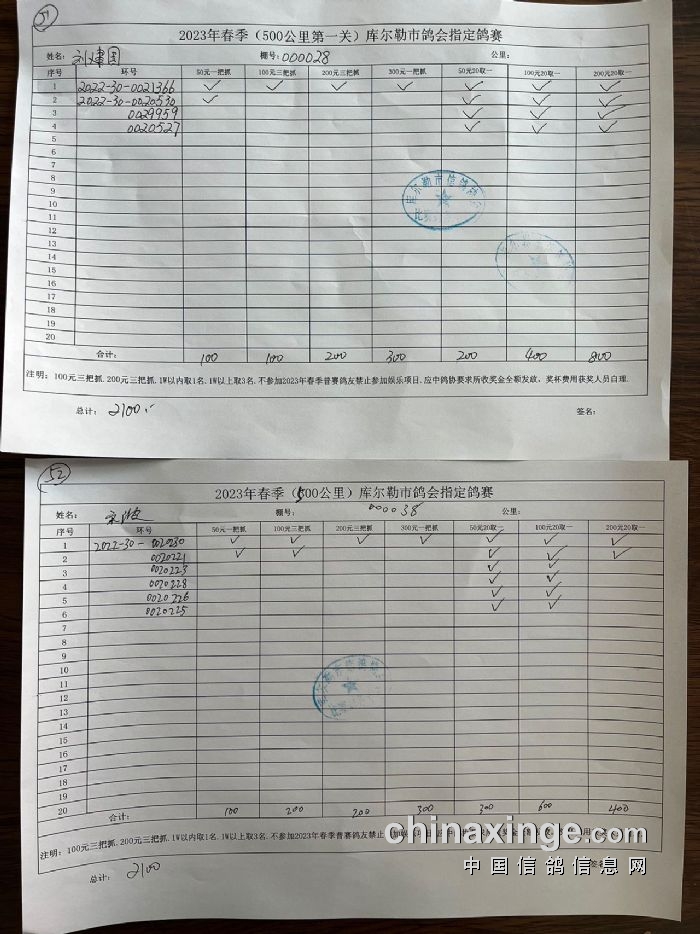 51
2023年春季（500公里第一关）库尔勒市鸽会指定鸽赛
姓名: 刘建国 棚号: 000028 公里:
序号 环号 50元一把抓 100元三把抓 200元三把抓 300元一把抓 50元20取一 100元20取一 200元20取一
1 2022-30-0021366 ✓ ✓ ✓ ✓ ✓ ✓ ✓
2 2022-30-0020530 ✓ ✓ ✓ ✓
3 0029959 ✓ ✓ ✓
4 0020527 ✓ ✓ ✓
5
6
7
8
9
10
11
12
13
14
15
16
17
18
19
20
合计: 100 100 200 300 200 400 800
注明: 100元三把抓.200元三把抓.1W以内取1名.1W以上取3名.不参加2023年春季普赛鸽友禁止参加娱乐项目.应中鸽协要求所收奖金全额发放、奖杯费用获奖人员自理.
总计: 2100. 签名:
库尔勒市信鸽
52
2023年春季（500公里）库尔勒市鸽会指定鸽赛
姓名: 棚号: 000038 公里:
序号 环号 50元一把抓 100元三把抓 200元三把抓 300元一把抓 50元20取一 100元20取一 200元20取一
1 2022-30-0020230 ✓ ✓ ✓ ✓ ✓ ✓ ✓
2 0020221 ✓ ✓ ✓ ✓ ✓
3 0020223 ✓ ✓
4 0020228 ✓ ✓
5 0020226 ✓ ✓
6 0020225 ✓ ✓
7
8
9
10
11
12
13
14
15
16
17
18
19
20
合计: 100 200 200 300 300 600 400
注明: 100元三把抓.200元三把抓.1W以内取1名.1W以上取3名.不参加2023年春季普赛鸽友禁止
总计: 2100 签名:
chinaxinge.com
中国信鸽信息网